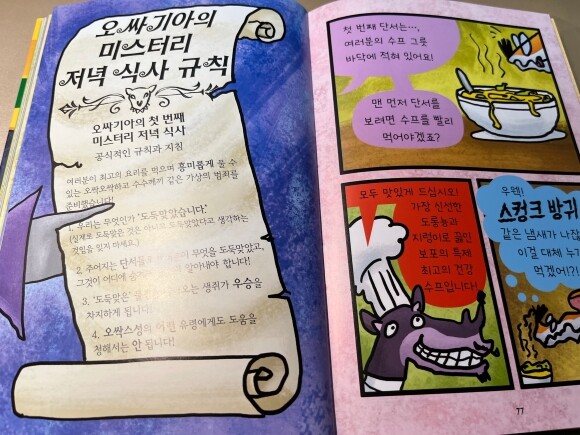 오싸기아의
미스터리
저녁 식사 규칙
오싸기아의 첫 번째
미스터리 저녁 식사
공식적인 규칙과 지침
여러분이 최고의 요리를 먹으며 흥미롭게 풀 수
있는 오싹오싹하고 수수께끼 같은 가상의 범죄를
준비했습니다!
1. 우리는 무엇인가 '도둑맞았습니다.'
(실제로 도둑맞은 것은 아니고 도둑맞았다고 생각하는
것임을 잊지 마세요.)
2. 주어지는 단서를 무엇을 도둑맞았고,
그것이 어디에 숨 알아내야 합니다!
3. '도둑맞은' 오는 생쥐가 우승을
차지하게 됩니다!
4. 오싹스성의 어떤 유령에게도 도움을
청해서는 안 됩니다!
첫 번째 단서는…,
여러분의 수프 그릇
바닥에 적혀 있어요!
맨 먼저 단서를
보려면 수프를 빨리
먹어야겠죠?
모두 맛있게 드십시오!
가장 신선한
도롱뇽과
지렁이로 끓인
보포의 특제
최고의 건강
수프입니다!
우웩!
스컹크 방귀
같은 냄새가 나잖
이걸 대체 누가
먹겠어!?!
77